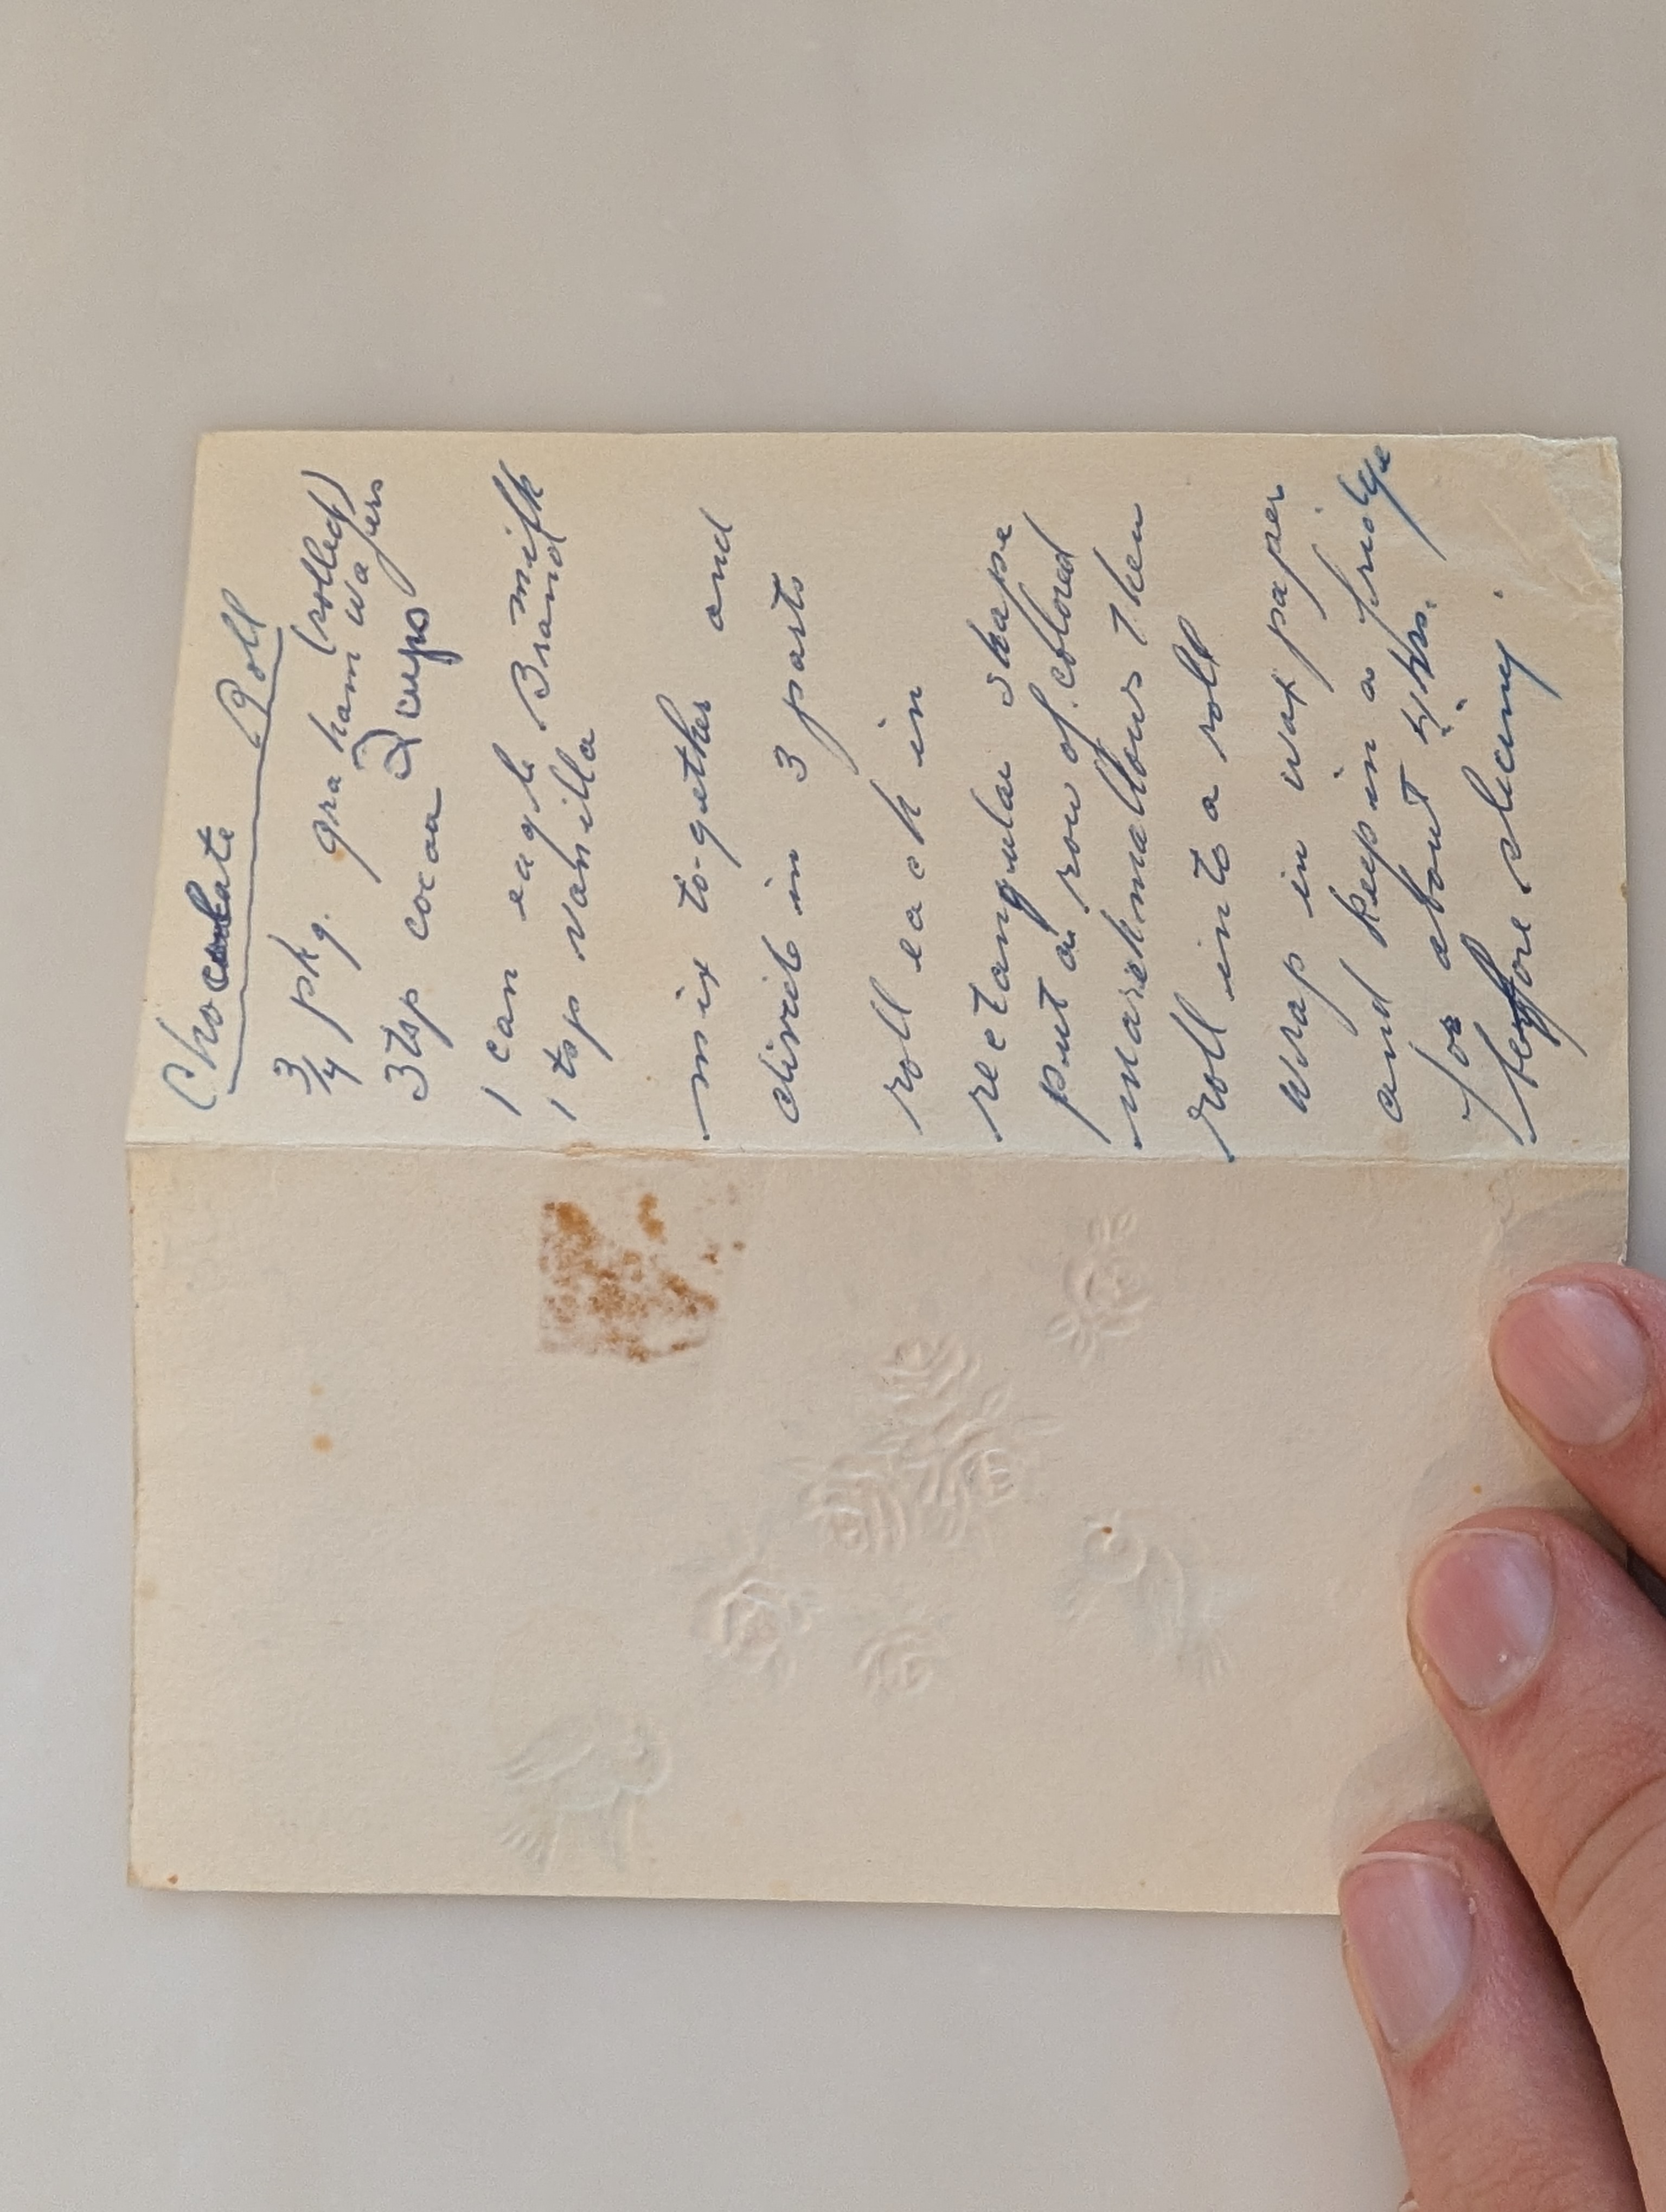 Chocolate Roll
3/4 pkg. graham (rolled) wafers
3 tsp cocoa 2 cups
1 can eagle milk Brand
1 tsp vanilla
mix to-gether and
divide in 3 parts
roll each in
rectangular shape
put a row of colored
marshmallows then
roll into a roll
wrap in wax paper
and keep in a fridge
for about hrs.
before slicing.